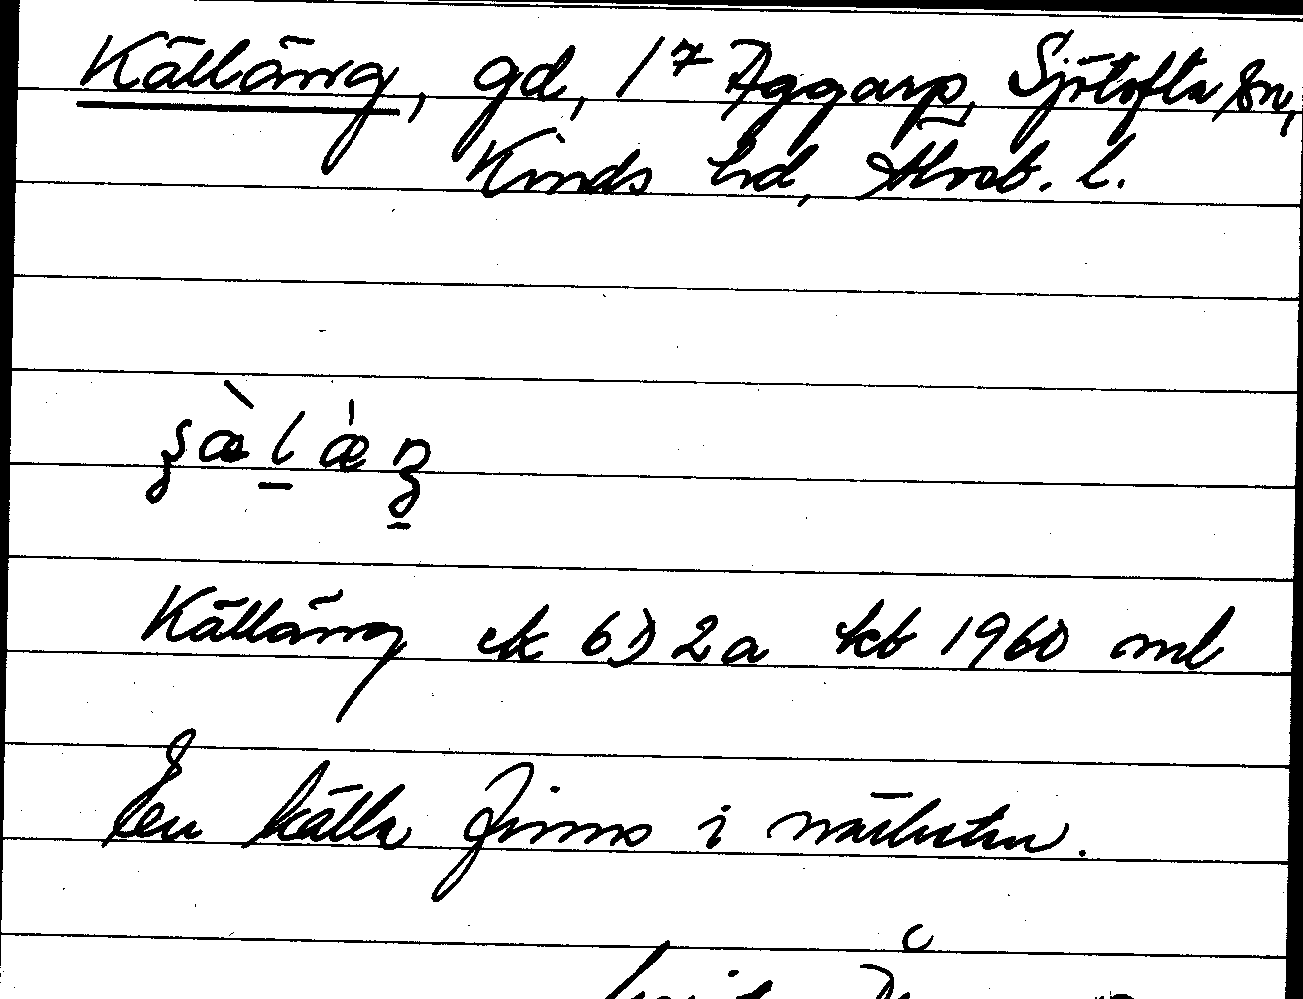 Källäng, gd, 1⁷ Aggarp, Sjötofta sn,
Kinds hd, Älvsb. l.
Källäng ek 6D2a kb 1960 ml
En källa finns i närheten.